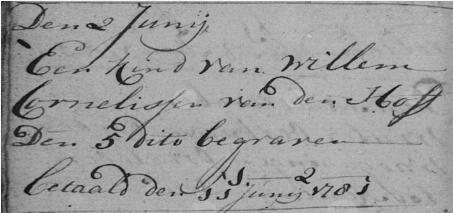 Den 2 Junij
Een Kind van Willem
Cornelissen van den Hoff
Den 5 dito begraven
betaald den 11 Junij 1781